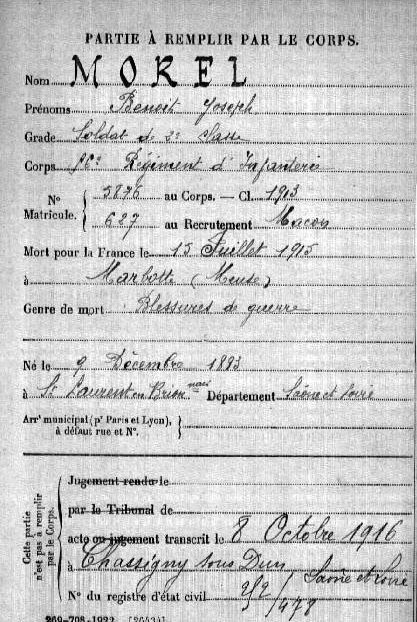 PARTIE À REMPLIR PAR LE CORPS.
Nom MOREL
Prénoms Benoit Joseph
Grade Soldat de 2e Classe
Corps 56e Régiment d'Infanterie
N° Matricule. { 5876 au Corps. — Cl. 1913
627 au Recrutement Macon
Mort pour la France le 15 Juillet 1915
à Marbotte (Meuse)
Genre de mort Blessures de guerre
Né le 9 Décembre 1893
à St Laurent en Brionnais Département Saône et Loire
Arrt municipal (pr Paris et Lyon), à défaut rue et N°. }
Cette partie n'est pas à remplir par le Corps.
Jugement rendu le
par le Tribunal de
acte ou jugement transcrit le 8 Octobre 1916
à Chassigny sous Dun Saône et Loire
N° du registre d'état civil /478
269-708-1922. [26434]